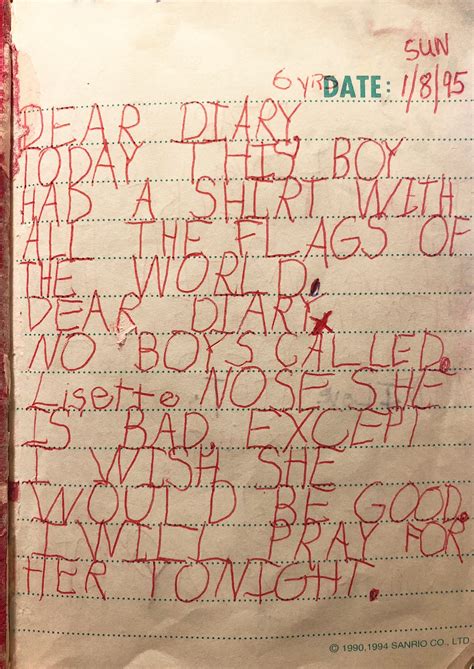 SUN
6 YRS DATE: 1/8/95
DEAR DIARY,
TODAY THIS BOY
HAD A SHIRT WITH
ALL THE FLAGS OF
THE WORLD.
DEAR DIARY
NO BOYS CALLED.
Lisette NOSE SHE
IS BAD. EXCEPT
I WISH SHE
WOULD BE GOOD.
I WILL PRAY FOR
HER TONIGHT.
© 1990, 1994 SANRIO CO., LTD